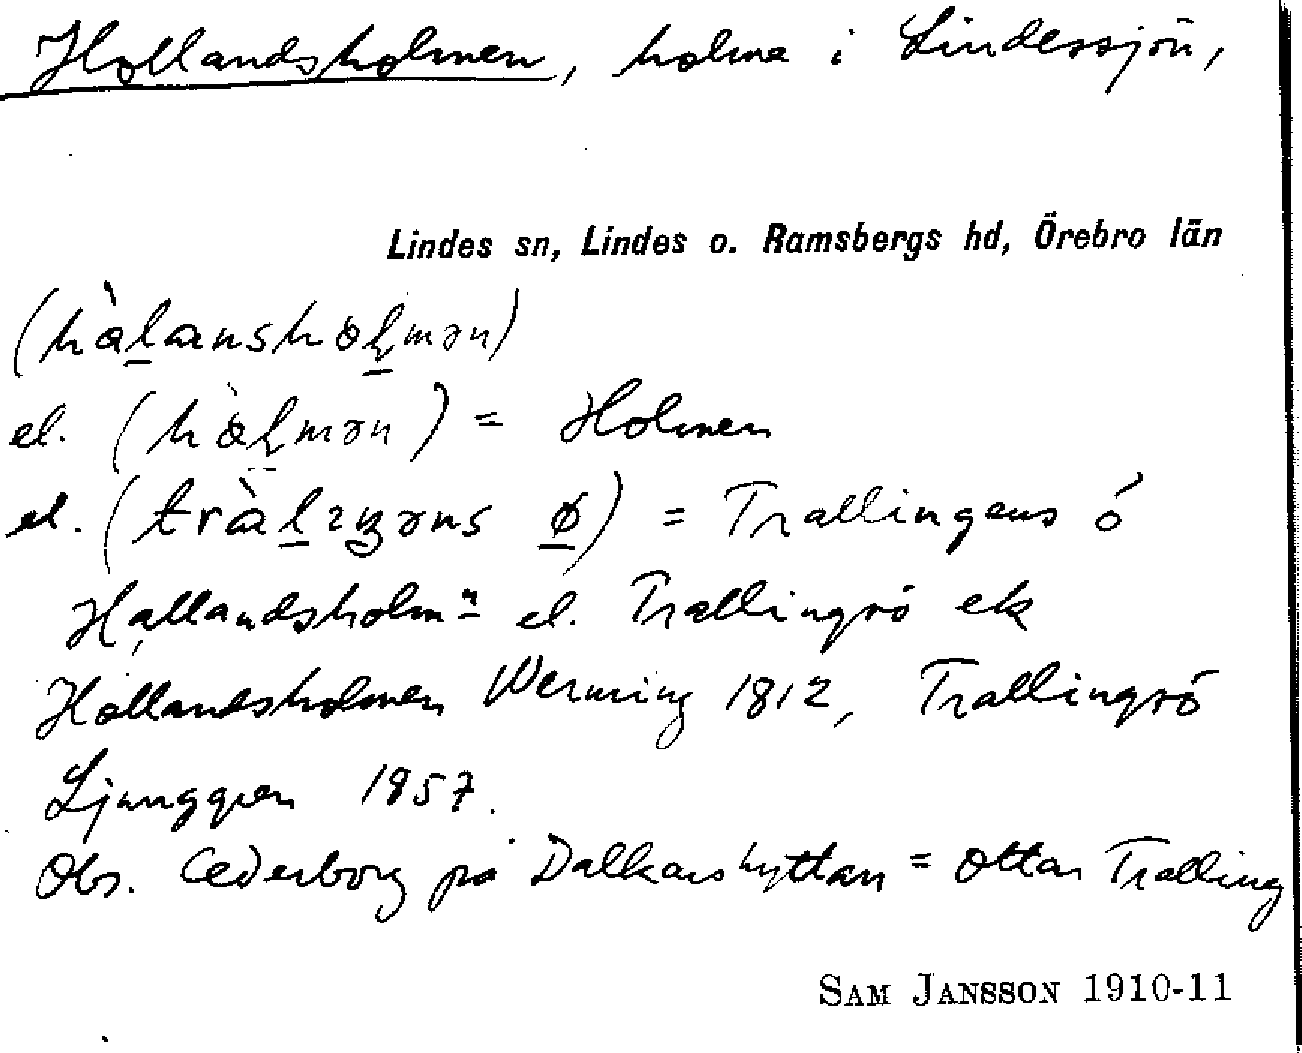 Hollandsholmen, holme i Lindessjön,
Lindes sn, Lindes o. Ramsbergs hd, Örebro län
(hàlansholmən)
el. (hòlmən) = Holmen
el. (tràlıŋəns ø) = Trallingens ö
Hallandsholmn el. Trallingsö ek
Hollandsholmen Werming 1812, Trallingsö
Ljunggren 1857.
Obs. Cederborg på Dalkarshyttan = Ottar Tralling
SAM JANSSON 1910-11